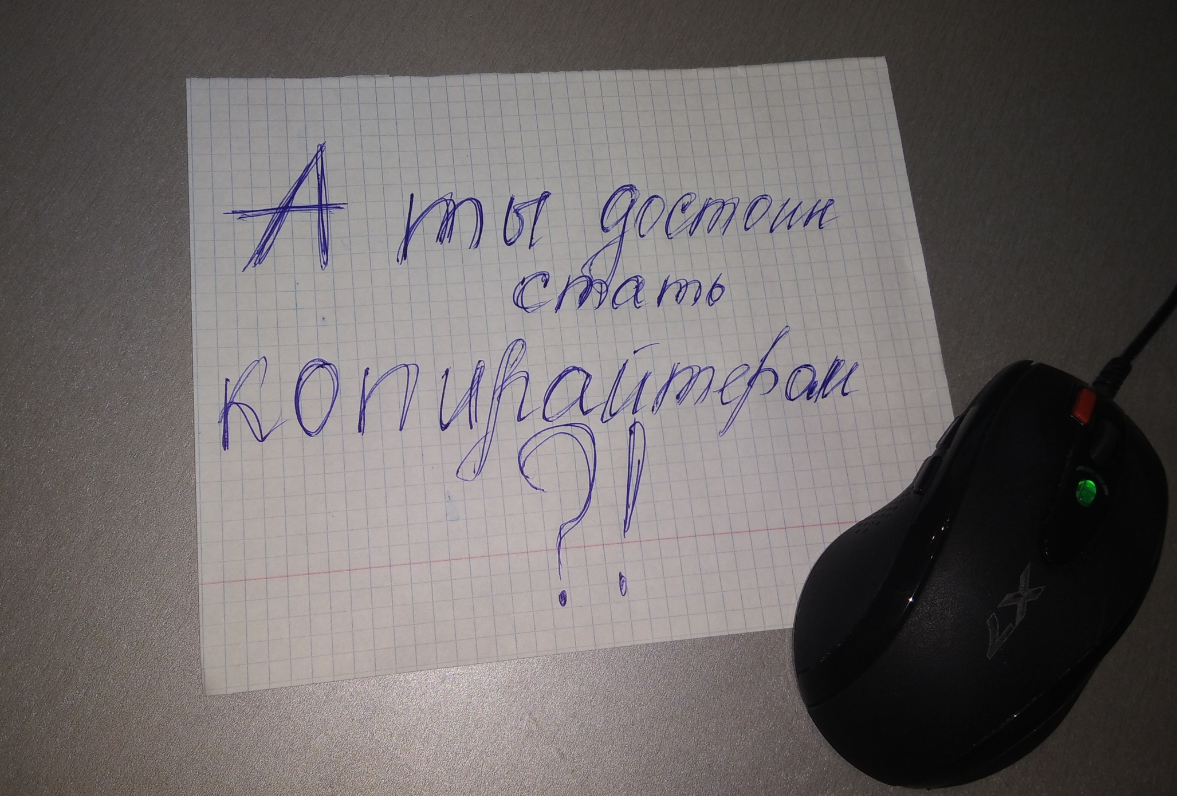 А ты достоин
стать
копирайтером
?!
X7